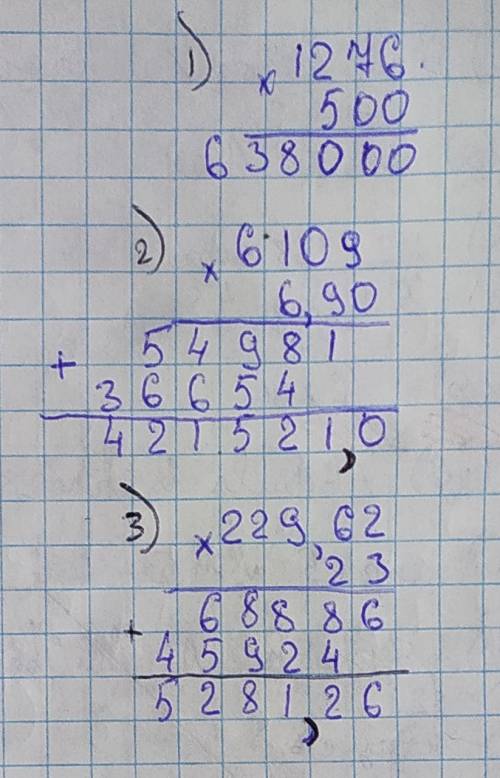 1) × 1276.
500
638000
2) × 6109
6,90
54981
+
36654
421521,0
3) × 229,62
23
68886
+
45924
5281,26